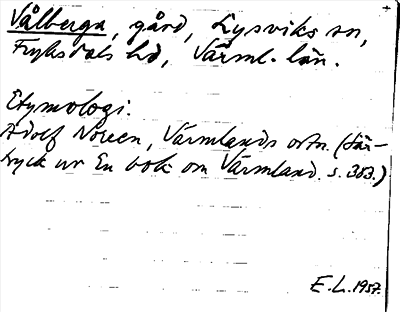 Vålberga, gård, Lysviks sn,
Fryksdals hd, Värml. län.
Etymologi.
Adolf Noreen, Värmlands ortn. (Sär-
tryck ur En bok om Värmland. s. 383.)
E.L. 1957.